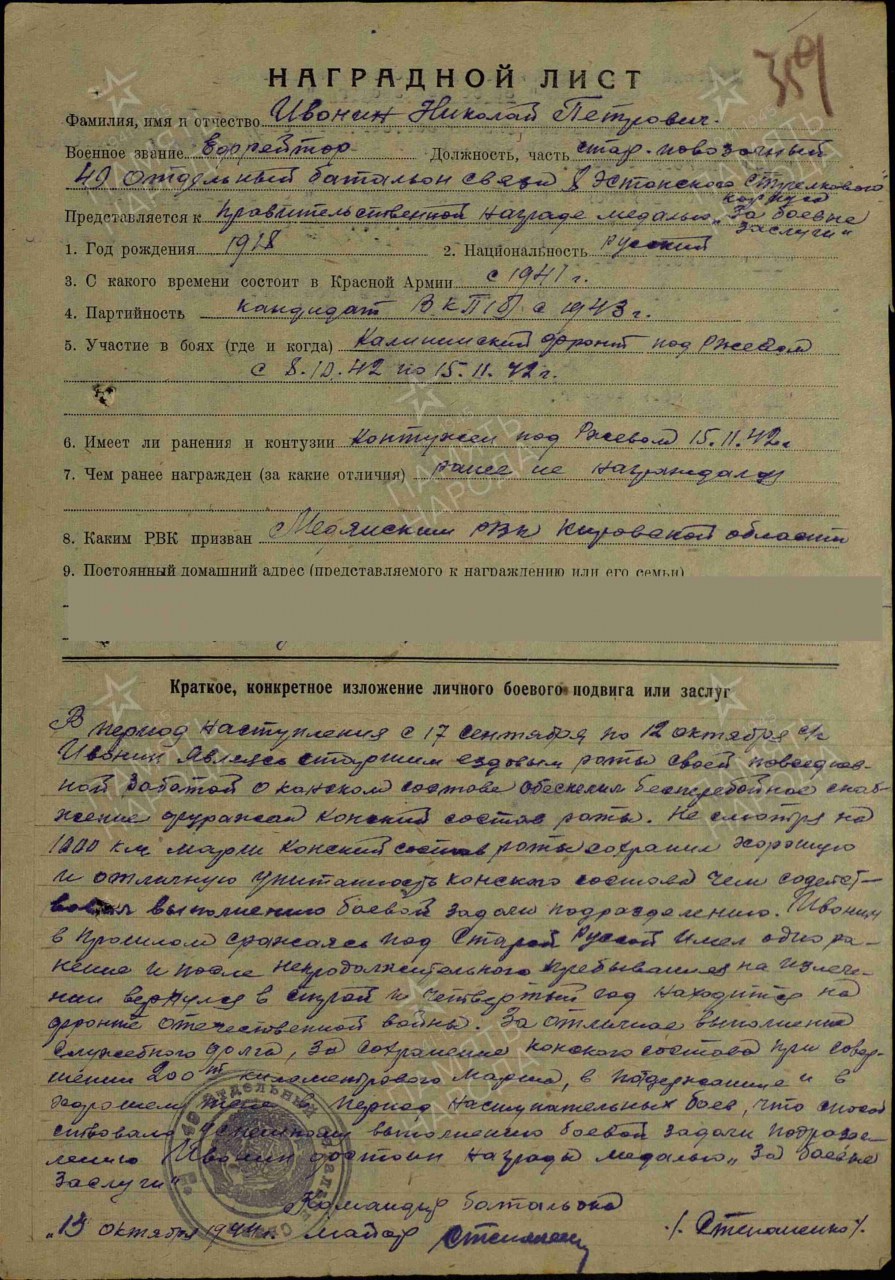 НАГРАДНОЙ ЛИСТ
Фамилия, имя и отчество Ивонин Николай Петрович.
Военное звание Ефрейтор Должность, часть стар. повозочный
40 отдельный батальон связи 8 Эстонского стрелкового
корпуса
Представляется к правительственной награде медалью „За боевые
заслуги"
1. Год рождения 1918 2. Национальность Русский
3. С какого времени состоит в Красной Армии с 1941 г.
4. Партийность кандидат ВКП(б) с 1943 г.
5. Участие в боях (где и когда) Калининский фронт под Ржевом
с 8.10.42 по 15.11.42 г.
6. Имеет ли ранения и контузии Контужен под Ржевом 15.11.42 г.
7. Чем ранее награжден (за какие отличия) ранее не награждался
8. Каким РВК призван Медянским РВК Кировской области
9. Постоянный домашний адрес (представляемого к награждению или его семьи)
Краткое, конкретное изложение личного боевого подвига или заслуг
В период наступления с 17 сентября по 12 октября с/г
Ивонин являясь старшим ездовым роты своей повседнев-
ной заботой о конском составе обеспечил бесперебойное снаб-
жение фуражом конский состав роты. Не смотря на
1000 км марш конский состав роты сохранил хорошую
и отличную упитанность конского состава чем содейст-
вовал выполнению боевой задачи подразделению. Ивонин
в прошлом сражаясь под Старой Руссой имел одно ра-
нение и после непродолжительного пребывания на излече-
нии вернулся в строй и четвертый год находится на
фронте отечественной войны. За отличное выполнение
служебного долга, за сохранение конского состава при совер-
шении 200 км километрового марша, в и в
хорошем теле в период наступательных боев, что способ
ствовало успешному выполнению боевой задачи подразде-
лению Ивонин достоин награды медалью „За боевые
заслуги"
Командир батальона
„13 октября 1944 г. майор /. Степаненко /.
ПАМЯТЬ
НАРОДА